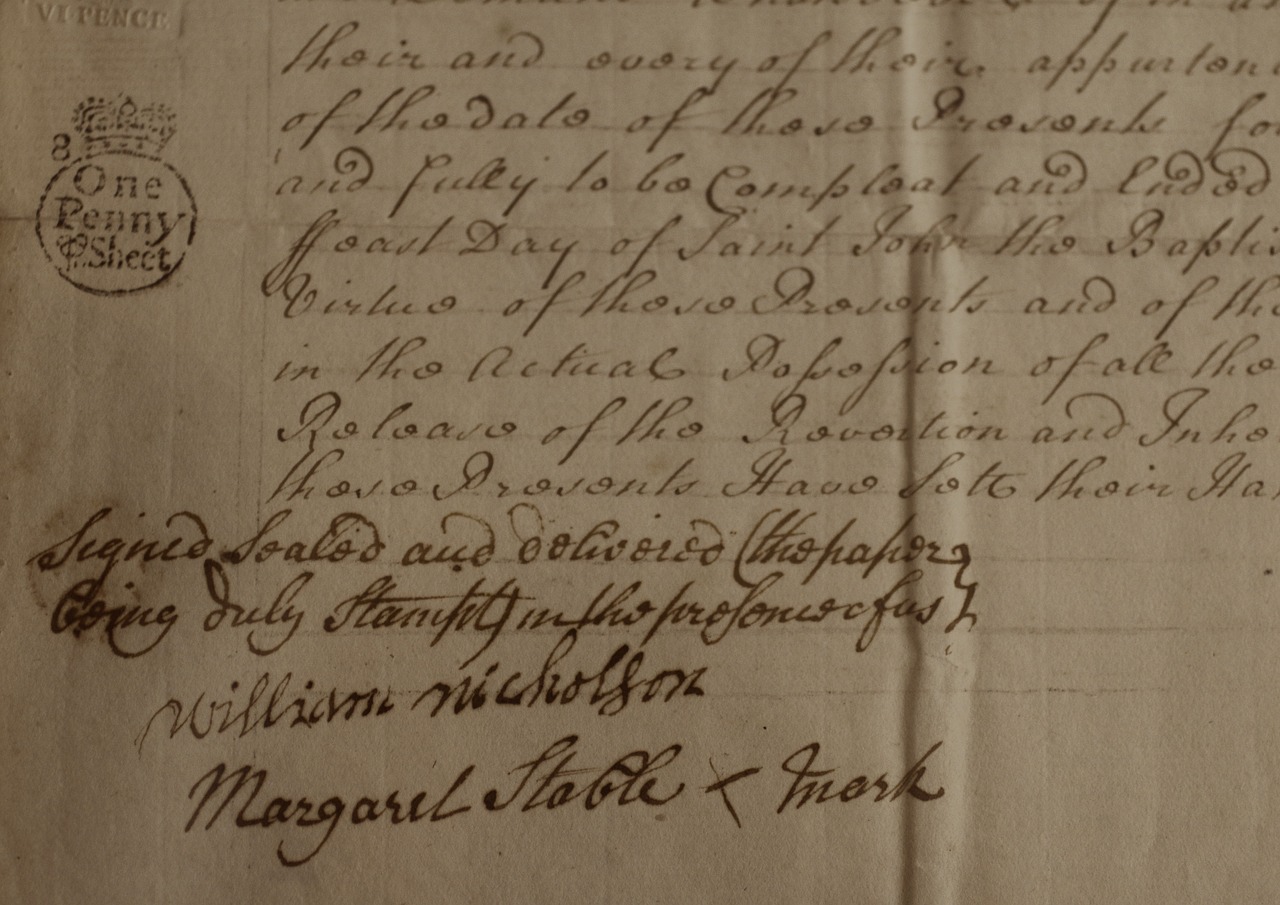 VI PENCE
8
One
Penny
P. Sheet
their and every of their appurten
of the date of these Presents fo
and fully to be Compleat and Ended
ffeast Day of Saint John the Baptis
Virtue of these Presents and of the
in the Actual Possession of all the
Release of the Revertion and Inhe
these Presents Have Sett their Han
Signed Sealed and delivered (the paper
being duly Stampt) in the presence of us
William Nicholson
Margaret Stable X Mark